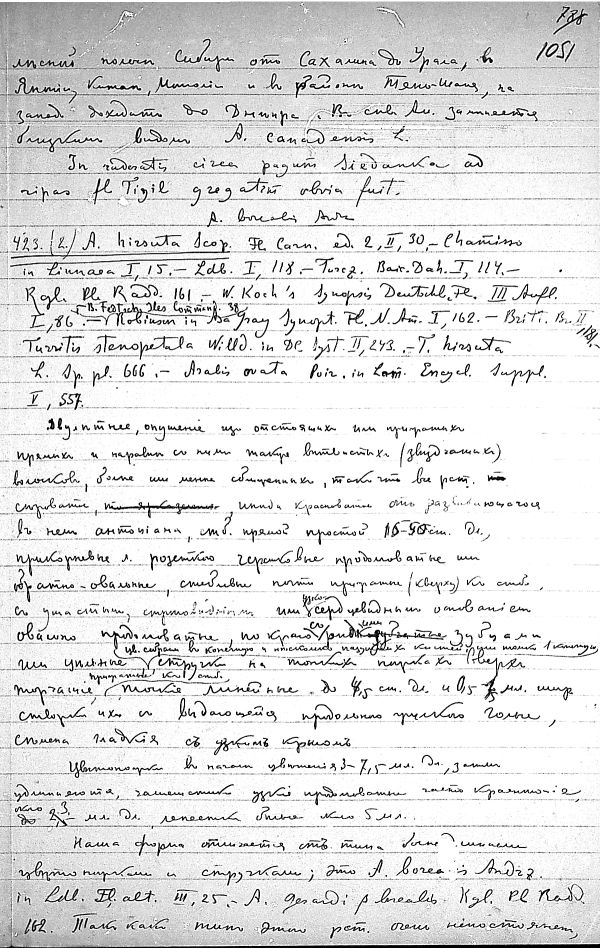 738
1051
лѣсной полосы Сибири отъ Сахалина до Урала, въ
Японіи, Китаѣ, Монголіи и въ районѣ Тянь-Шаня, на
западѣ доходитъ до Днѣпра. Въ сѣв. Ам. замѣняется
близкимъ видомъ A. canadensis L.
In ruderatis circa pagum Siedanka ad
ripas fl. Tigil gregatim obvia fuit.
A. borealis Andrz
423. (2.) A. hirsuta Scop. Fl. Carn. ed. 2, II, 30. – Chamisso
in Linnaea I, 15. – Ldb. I, 118 – Turcz. Baic. Dah. I, 114. –
B. Fedtsch. Iles Command. 58
Rgl. Pl. Radd. 161 – W. Koch's Synopsis Deutschl. Fl. III Aufl.
I, 86. – Robinson in Asa Gray Synopt. Fl. N. Am. I, 162. – Britt. Br. II
181. –
Turritis stenopetala Willd. in DC. Syst. II, 243. – T. hirsuta
L. Sp. pl. 666. – Arabis ovata Poir. in Lam. Encycl. Suppl.
V, 557.
Двулѣтнее, опушеніе изъ отстоящихъ или прижатыхъ
прямыхъ и наравнѣ съ ними также вѣтвистыхъ (звѣздчатыхъ)
волосковъ, болѣе или менѣе сближенныхъ, такъ что все раст.
сѣроватое, иногда красноватое отъ развивающагося
въ немъ антоціана, стб. прямой простой 10-50 ст. дл.,
прикорневые л. розеткою черешковые продолговатые или
обратно-овальные, стеблевые почти прижатые (кверху) къ стеблю
съ ушастымъ, стрѣловиднымъ или сердцевиднымъ основаніемъ
овально продолговатые, по краю зубцами
или цѣльные, стручки на тонкихъ ножкахъ вверхъ
прижатые къ стб.
торчащіе, тонкіе линейные до 4,5 ст. дл. и 0,5 мл. шир.
створки ихъ съ выдающейся продольной жилкою голые,
сѣмена гладкія съ узкимъ крыломъ
Цвѣтоножки въ началѣ цвѣтенія 3-7,5 мл. дл., затѣмъ
удлиняются, чашелистики узкіе продолговатые часто красноватые,
около 3 мл. дл. лепестки бѣлые около 5 мл.
Наша форма отличается отъ типа болѣе длинными
цвѣтоножками и стручками; это A. borealis Andrz.
in Ldb. Fl. alt. III, 25. – A. gerardi β borealis. Rgl. Pl. Radd.
162. Такъ какъ типъ этого раст. очень непостояненъ,